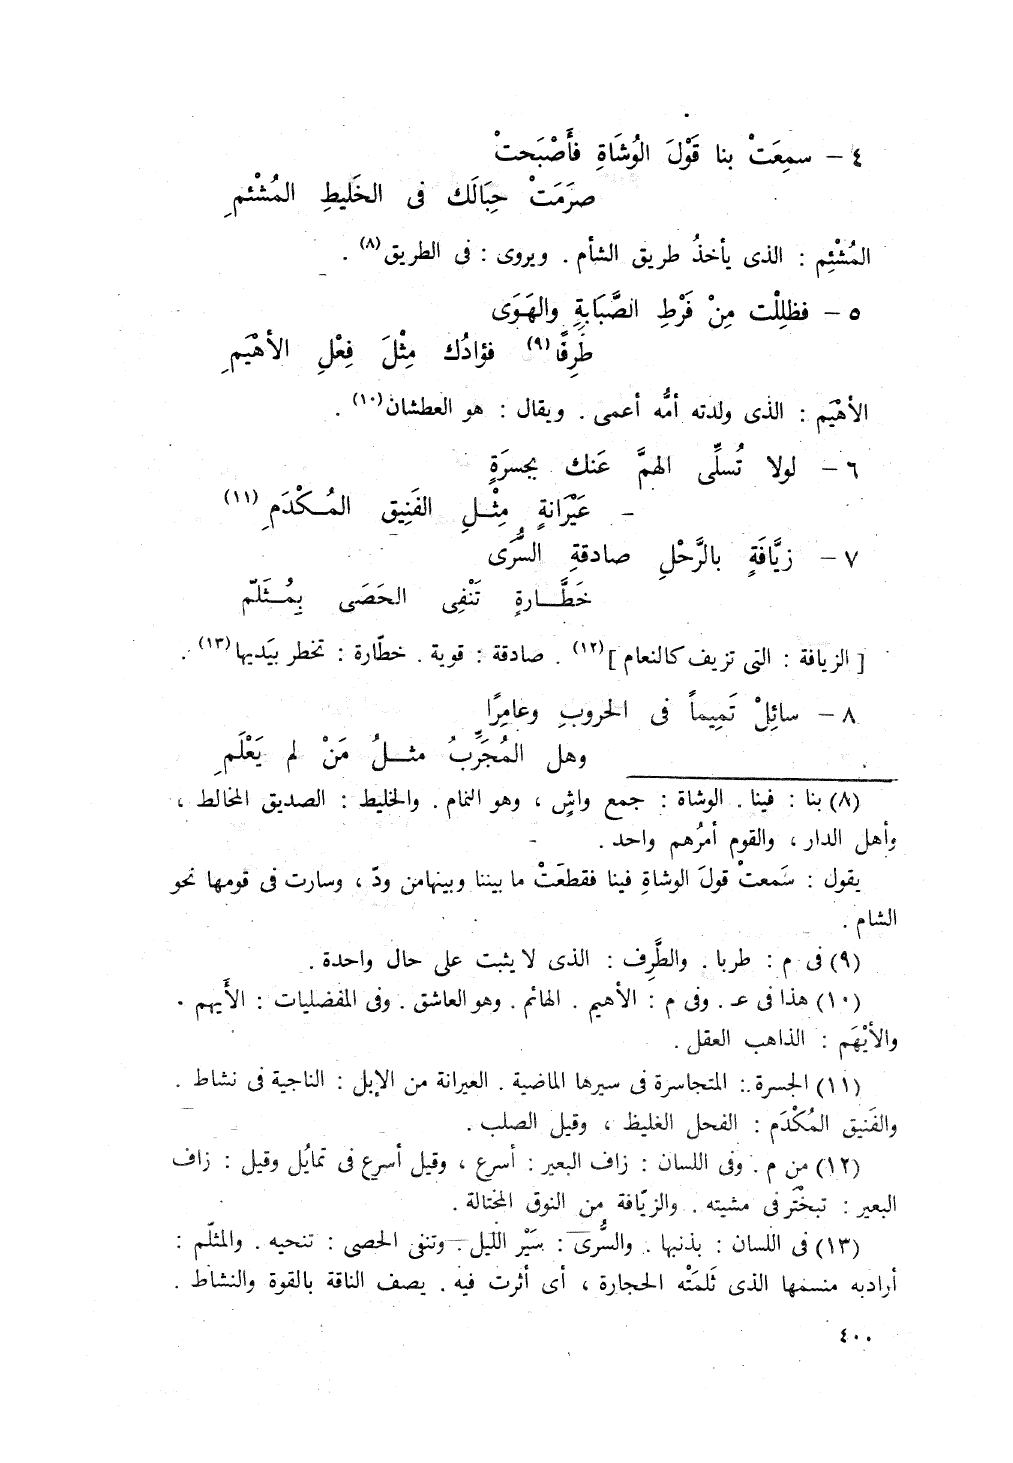 ٤ – سمِعَتْ بنا قَوْلَ الوُشَاةِ فأَصْبَحتْ
صرَمَتْ حِبَالَك فى الخَليطِ المُشْئمِ
المُشْئِم : الذى يأخذُ طريق الشأم . ويروى : فى الطريق(٨) .
٥ – فظلِلْت مِنْ فَرْطِ الصَّبَابةِ والهَوَى
طَرِفًا(٩) فؤادُك مِثْلَ فِعْلِ الأهْيَمِ
الأهْيَم : الذى ولدته أمُّه أعمى . ويقال : هو العطشان(١٠) .
٦ – لولا تُسلِّى الهمَّ عَنك بجسرَةٍ
عَيْرَانةٍ مِثْـلِ الفَنِيق المُـكْدَمِ(١١)
٧ – زيَّافَةٍ بالرَّحْلِ صادقةِ السُّرَى
خَطَّـارةٍ تَنْفِى الحَصَى بِمُـثَلّم
[ الزيافة : التى تزيف كالنعام ](١٢) . صادقة : قوية . خطّارة : تخطر بيَديها(١٣) .
٨ – سائِلْ تَمِيماً فى الحروبِ وعامِرًا
وهل المُجَرِّبُ مثـلُ مَنْ لم يَعْلَمِ
(٨) بنا : فينا . الوشاة : جمع واشٍ ، وهو النمام . والخليط : الصديق المخالط ،
وأهل الدار ، والقوم أمرُهم واحد .
يقول : سَمعتْ قولَ الوشاةِ فينا فقطعَتْ ما بيننا وبينهامن ودّ ، وسارت فى قومها نحو
الشام .
(٩) فى م : طربا . والطَّرِف : الذى لا يثبت على حال واحدة .
(١٠) هذا فى عـ . وفى م : الأهيم . الهائم . وهو العاشق . وفى المفضليات : الأَيهم .
والأيْهَم : الذاهب العقل .
(١١) الجسرة : المتجاسرة فى سيرها الماضية . العيرانة من الإبل : الناجية فى نشاط .
والفَنيق المُكْدَم : الفحل الغليظ ، وقيل الصلب .
(١٢) من م . وفى اللسان : زاف البعير : أسرع ، وقيل أسرع فى تمايُل وقيل : زاف
البعير : تبختَر فى مشيته . والزيّافة من النوق المختالة .
(١٣) فى اللسان : بذنبها . والسُّرى : سَيْر الليل . وتنفى الحصى : تنحيه . والمثلّم :
أرادبه منسمها الذى ثَلمَتْه الحجارة ، أى أثرت فيه . يصف الناقة بالقوة والنشاط .
٤٠٠